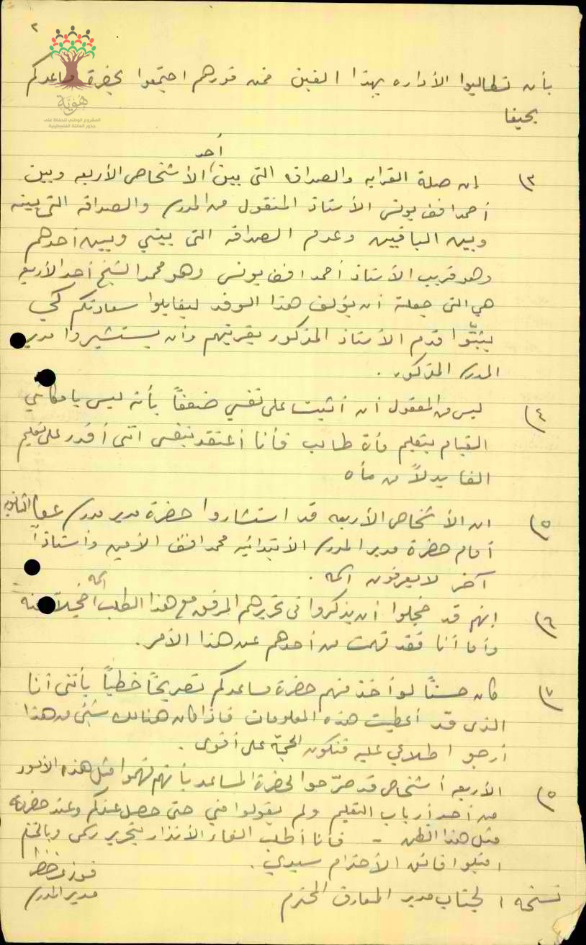 ٢
هوية
بأن تطالبوا الأداره بهذا الغبن فمن فورهم اجتمعوا بحضرة مساعدكم
بحيفا
٣) ان صلة القرابه والصداقه التي بين أحد الأشخاص الأربعه وبين
احمد افندي يونس الأستاذ المنقول من المدرسة والصداقة التي بينه
وبين الباقين وعدم الصداقه التي بيني وبين أحدهم
وهو قريب الأستاذ أحمد افندي يونس وهو محمد الشيخ أحد الأربعة
هي التي جعلت أن يؤلف هذا الوفد ليقابلوا سعادتكم لكي
يثبتوا قدم الأستاذ المذكور بقريتهم وأن يستشيروا مدير
المدرسة المذكور.
٤) ليس من المعقول أن أثبت على نفسي ضعفاً بأنه ليس بامكاني
القيام بتعليم مأة طالب فأنا أعتقد بنفسي انني أقدر على تعليم
الفا بدلاً من مأه
٥) ان الأشخاص الأربعه قد استشاروا حضرة مدير مدرسة الثانويه
أمام حضرة مدير المدرسة الأبتدائيه محمد افندي الأمين وأستاذاً
آخر لا يعرفون اسمه.
٦) إنهم قد خجلوا أن يذكروا في تحريرهم المرفق مع هذا الطلب اسمه
وأما أنا فقد فهمت من أحدهم عن هذا الأمر.
٧) كان حسناً لو أخذ منهم حضرة مساعدكم تصريحاً خطياً بأنني أنا
الذي قد أعطيت هذه المعلومات فاذا كان هنالك شيء من هذا
أرجو اطلاعي عليه فتكون الحجة على أقوى.
٥) الأربعه أشخاص قد صرحوا لحضرة المساعد بأنهم فهموا مثل هذه الأمور
من أحد أرباب التعليم ولم يقولوا مني حتى حصل عندكم وعند حضرته
مثل هذا الظن - فأنا أطلب الغاء الأنذار بتحرير رسمي وبالختام
اقبلوا فائق الأحترام سيدي.
نسخه ١ لجناب مدير المعارف المحترم
مدير المدرسة